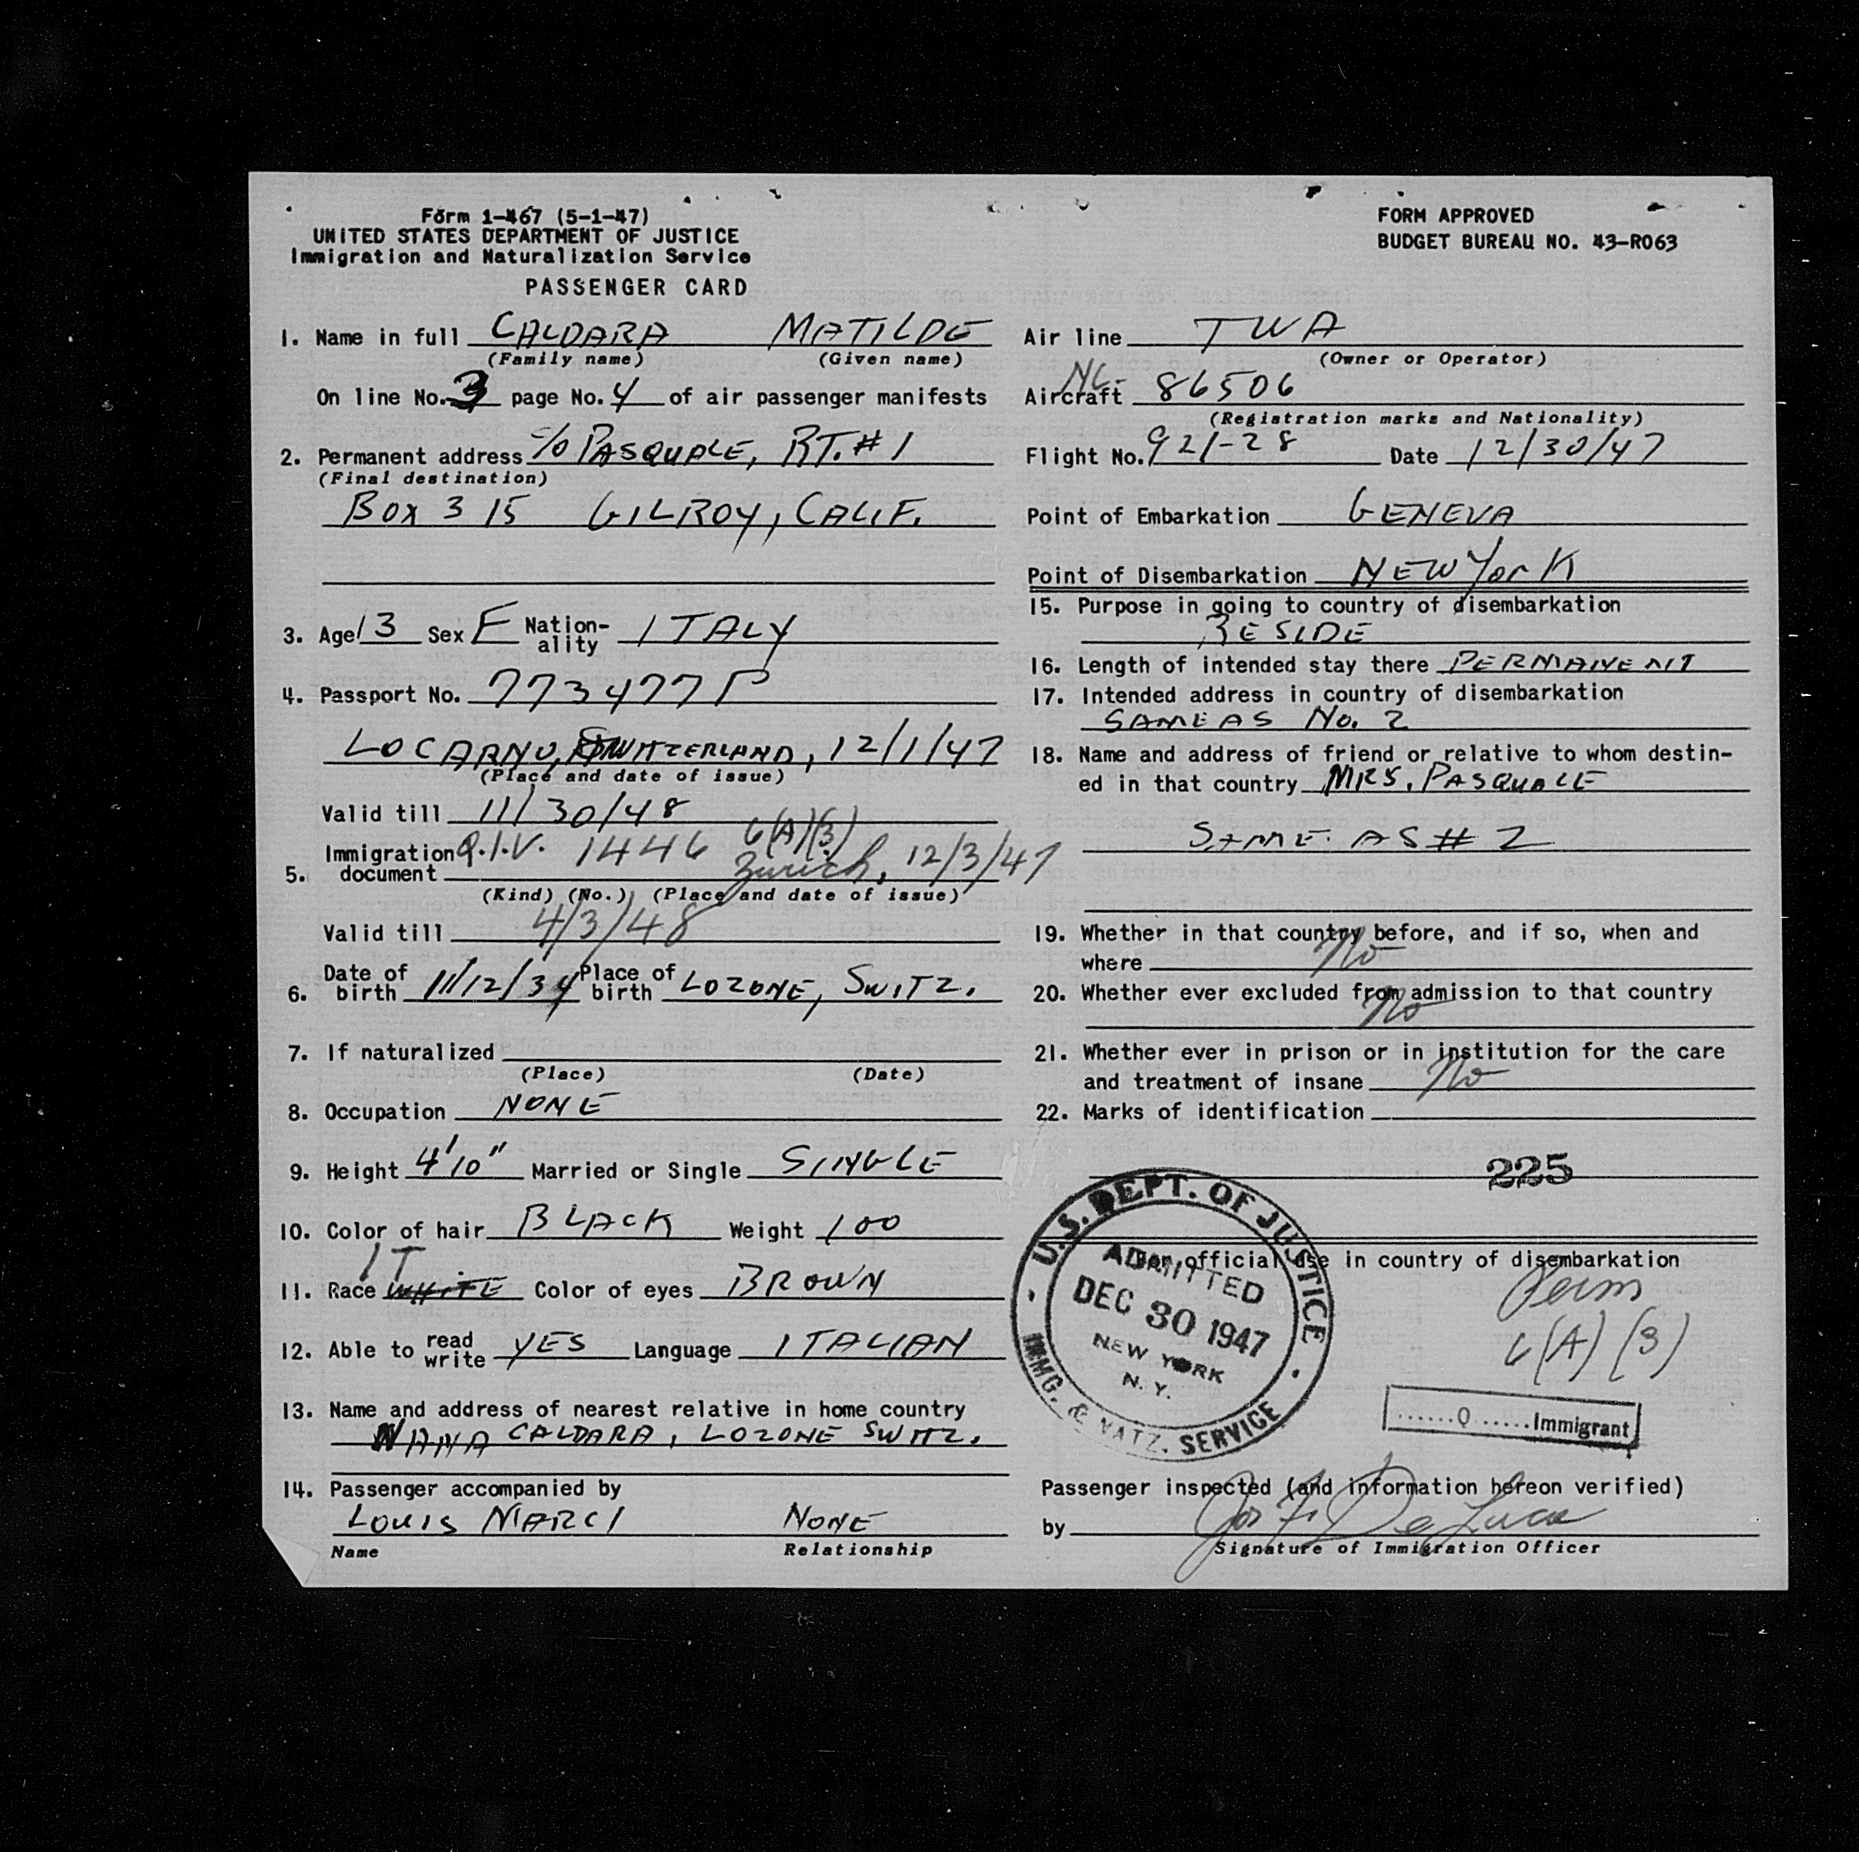 Form 1-467 (5-1-47)
UNITED STATES DEPARTMENT OF JUSTICE
Immigration and Naturalization Service
PASSENGER CARD
FORM APPROVED
BUDGET BUREAU NO. 43-R063
1. Name in full CALDARA MATILDE
(Family name) (Given name)
On line No. 3 page No. 4 of air passenger manifests
2. Permanent address c/o PASQUALE, RT. #1
(Final destination)
BOX 315 GILROY, CALIF.
3. Age 13 Sex F Nation-ality ITALY
4. Passport No. 773477P
LOCARNO, SWITZERLAND, 12/1/47
(Place and date of issue)
Valid till 11/30/48
6(A)(3)
5. Immigration document Q.I.V. 1446 Zurich, 12/3/47
(Kind) (No.) (Place and date of issue)
Valid till 4/3/48
6. Date of birth 11/12/34 Place of birth LOZONE, SWITZ.
7. If naturalized
(Place) (Date)
8. Occupation NONE
9. Height 4'10" Married or Single SINGLE
10. Color of hair BLACK Weight 100
IT
11. Race WHITE Color of eyes BROWN
12. Able to read write YES Language ITALIAN
13. Name and address of nearest relative in home country
CALDARA, LOZONE SWITZ.
14. Passenger accompanied by
LOUIS MARCI NONE
Name Relationship
Air line TWA
(Owner or Operator)
Aircraft NC- 86506
(Registration marks and Nationality)
Flight No. 921-28 Date 12/30/47
Point of Embarkation GENEVA
Point of Disembarkation NEW YorK
15. Purpose in going to country of disembarkation
RESIDE
16. Length of intended stay there PERMANENT
17. Intended address in country of disembarkation
SAME AS No. 2
18. Name and address of friend or relative to whom destin-
ed in that country MRS. PASQUALE
SAME AS # 2
19. Whether in that country before, and if so, when and
where No
20. Whether ever excluded from admission to that country
No
21. Whether ever in prison or in institution for the care
and treatment of insane No
22. Marks of identification
225
For official use in country of disembarkation
U.S. DEPT. OF JUSTICE
ADMITTED
DEC 30 1947
NEW YORK
N. Y.
IMMG. & NATZ. SERVICE
Perm
6(A)(3)
......Q......Immigrant
Passenger inspected (and information hereon verified)
by Jos F. De Luca
Signature of Immigration Officer